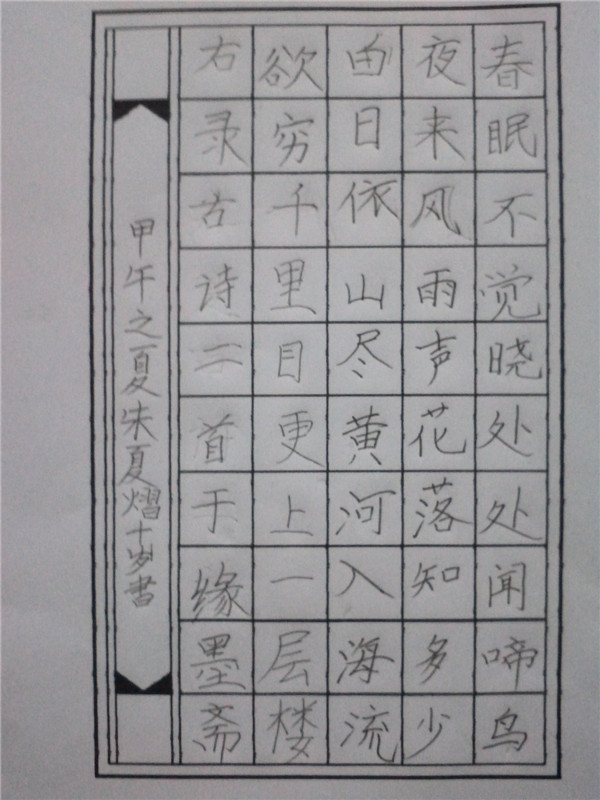 春眠不觉晓处处闻啼鸟
夜来风雨声花落知多少
白日依山尽黄河入海流
欲穷千里目更上一层楼
右录古诗二首于缘墨斋
甲午之夏朱夏熠十岁书